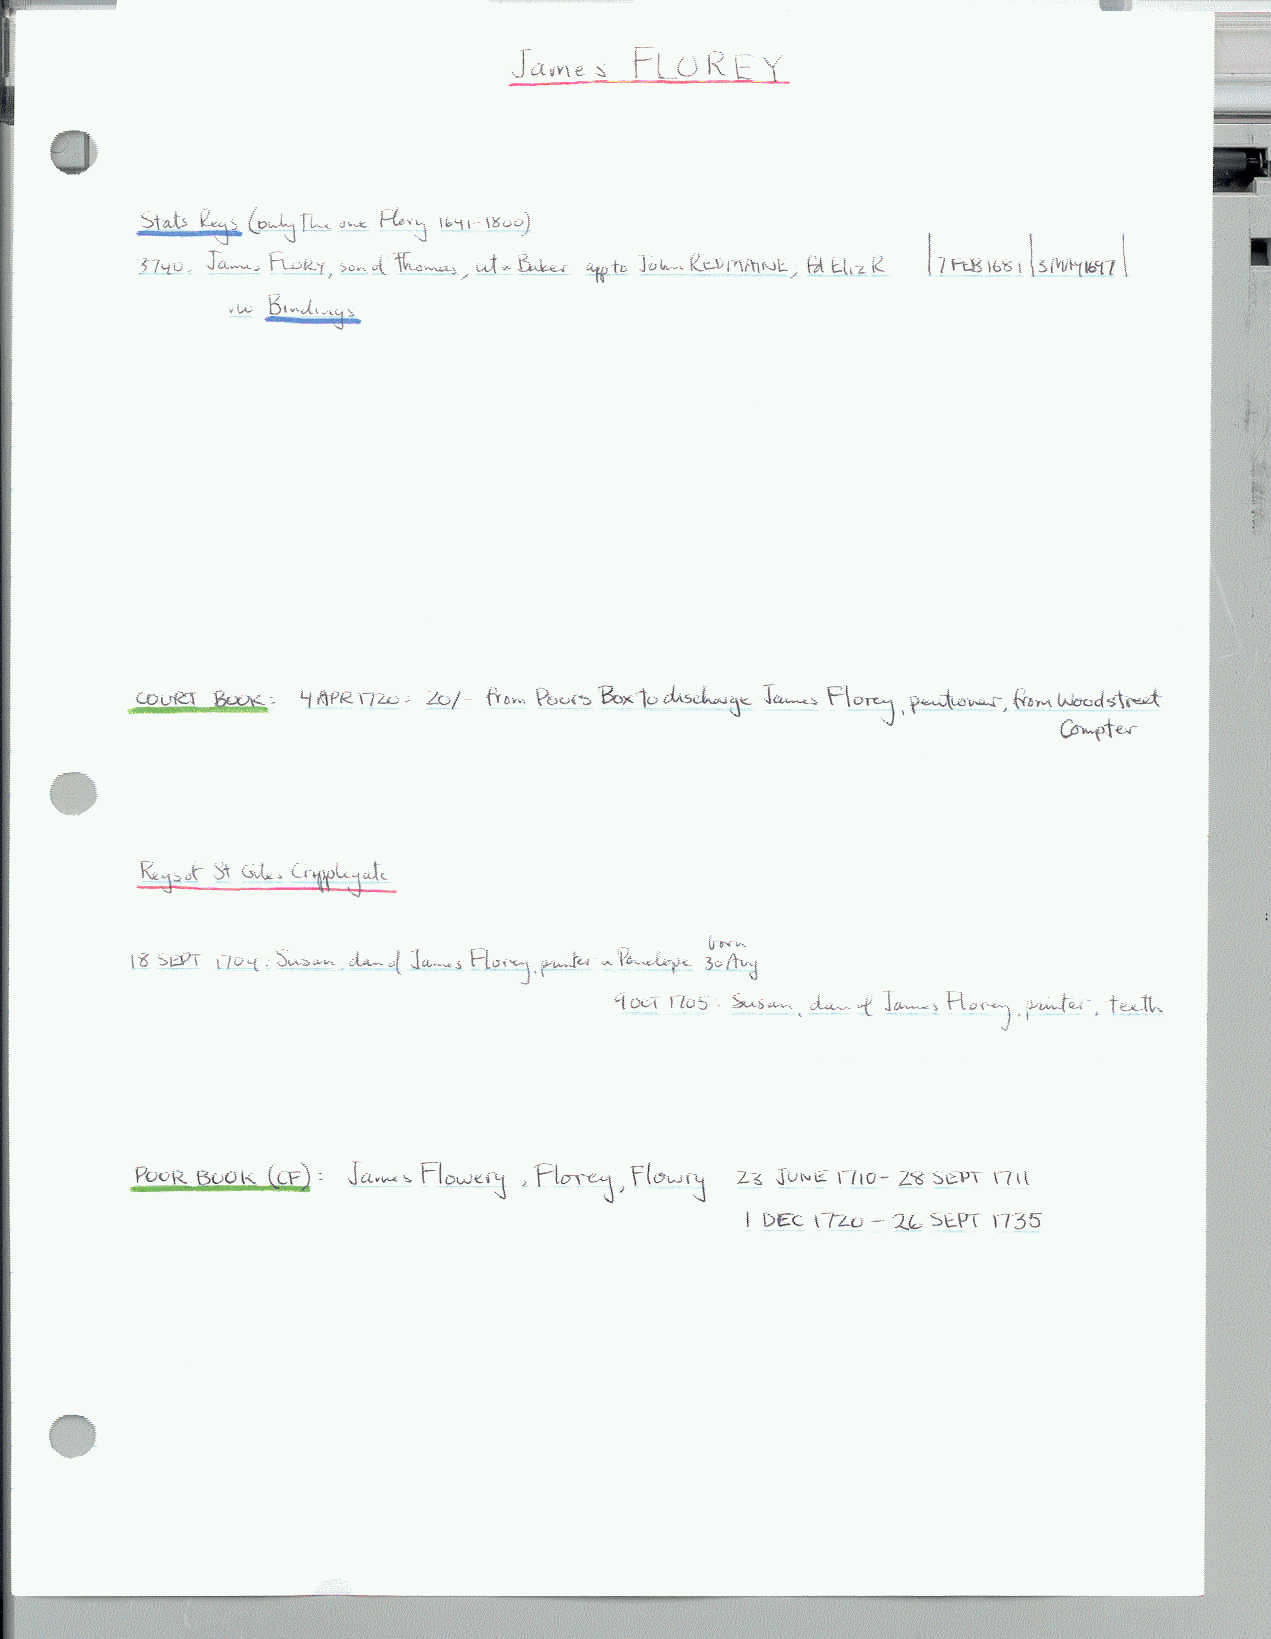 James FLOREY
Stats Regs (only the one Flory 1641-1800)
3740. James FLORY, son of Thomas, cit & Baker app to John REDMAYNE, Fd Eliz R |7 FEB 1681|3 MAY 1697|
Bindings
COURT BOOK: 4 APR 1720: 20/- from Poors Box to discharge James Florey, pentioner, from Woodstreet
Compter
Regs of St Giles Cripplegate
born
18 SEPT 1704: Susan dau of James Florey, printer & Penelope 30 Aug
9 OCT 1705. Susan, dau of James Florey, printer, teeth
POOR BOOK (CF): James Flowery, Florey, Flowry 23 JUNE 1710- 28 SEPT 1711
1 DEC 1720 - 26 SEPT 1735